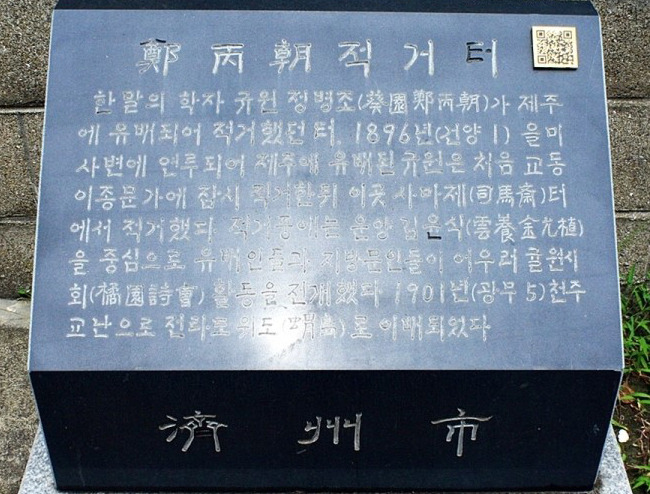 鄭丙朝적거터
한말의 학자 규원 정병조(葵園鄭丙朝)가 제주
에 유배되어 적거했던 터. 1896년(건양 1) 을미
사변에 연루되어 제주에 유배된 규원은 처음 교동
이종문가에 잠시 적거한뒤 이곳 사마재(司馬齋)터
에서 적거했다 적거중에는 운양 김윤식(雲養金允植)
을 중심으로 유배인들과 지방문인들이 어우러 귤원시
회(橘園詩會) 활동을 전개했다 1901년(광무 5)천주
교난으로 전라도 위도(蝟島)로 이배되었다
濟州市